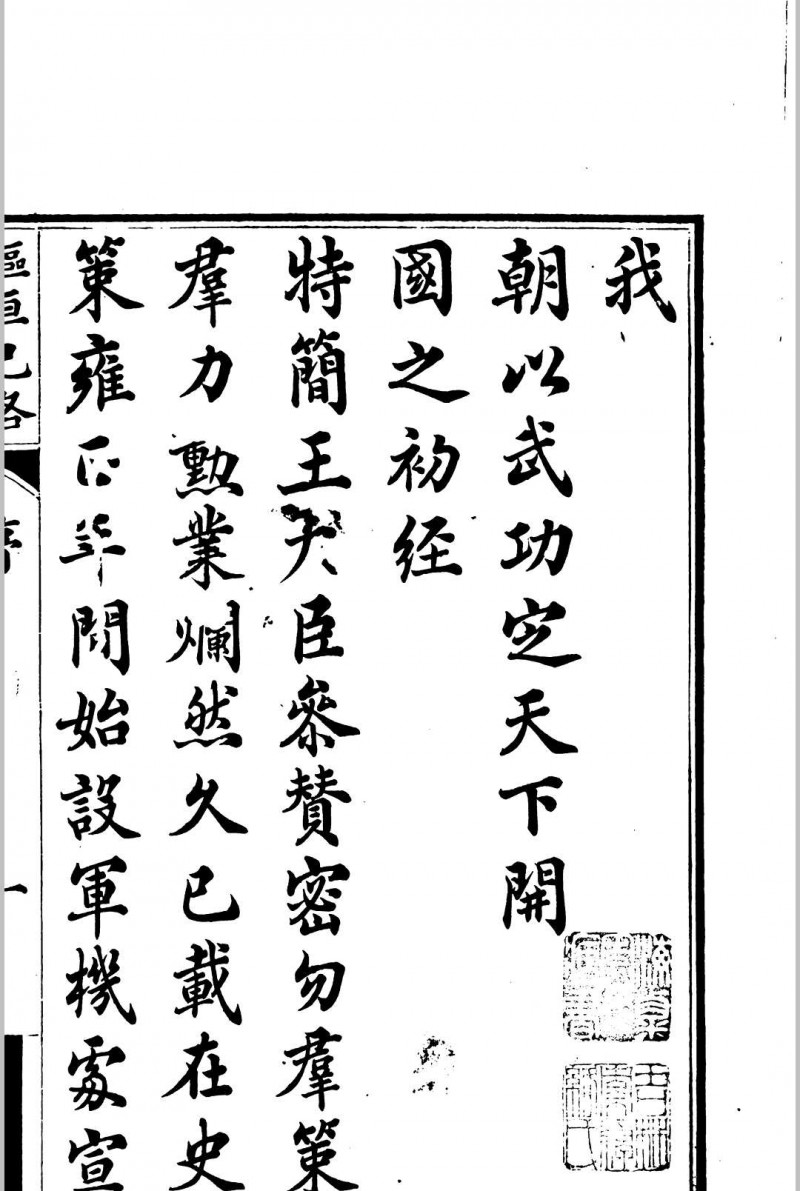 我
朝以武功定天下開
國之初経
特簡王大臣叅贊密勿羣策
羣力勲業爛然久已載在史
策雍正年間始設軍機處宣
樞垣記略
序
一